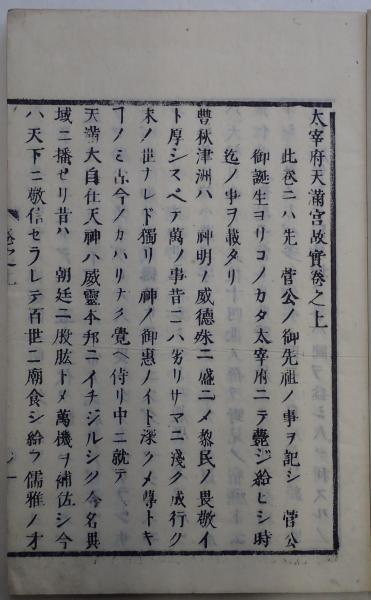 太宰府天滿宮故實卷之上
此卷ニハ先　菅公ノ御先祖ノ事ヲ記シ　菅公
御誕生ヨリコノカタ太宰府ニテ薨ジ給ヒシ時
迄ノ事ヲ載タリ
豊秋津洲ハ　神明ノ威德殊ニ盛ニメ黎民ノ畏敬イ
ト厚シスベテ萬ノ事昔ニハ劣リサマニ淺ク成行ク
末ノ世ナレド獨リ神ノ御惠ノイト深クメ尊トキ
ヿノミ古今ノカハリナク覺ヘ侍リ中ニ就テ
天滿大自在天神ハ威靈本邦ニイチジルシク今名異
域ニ播セリ昔ハ　朝廷ニ股肱トメ萬機ヲ補佐シ今
ハ天下ニ敬信セラレテ百世ニ廟食シ給フ儒雅ノ才
卷之上